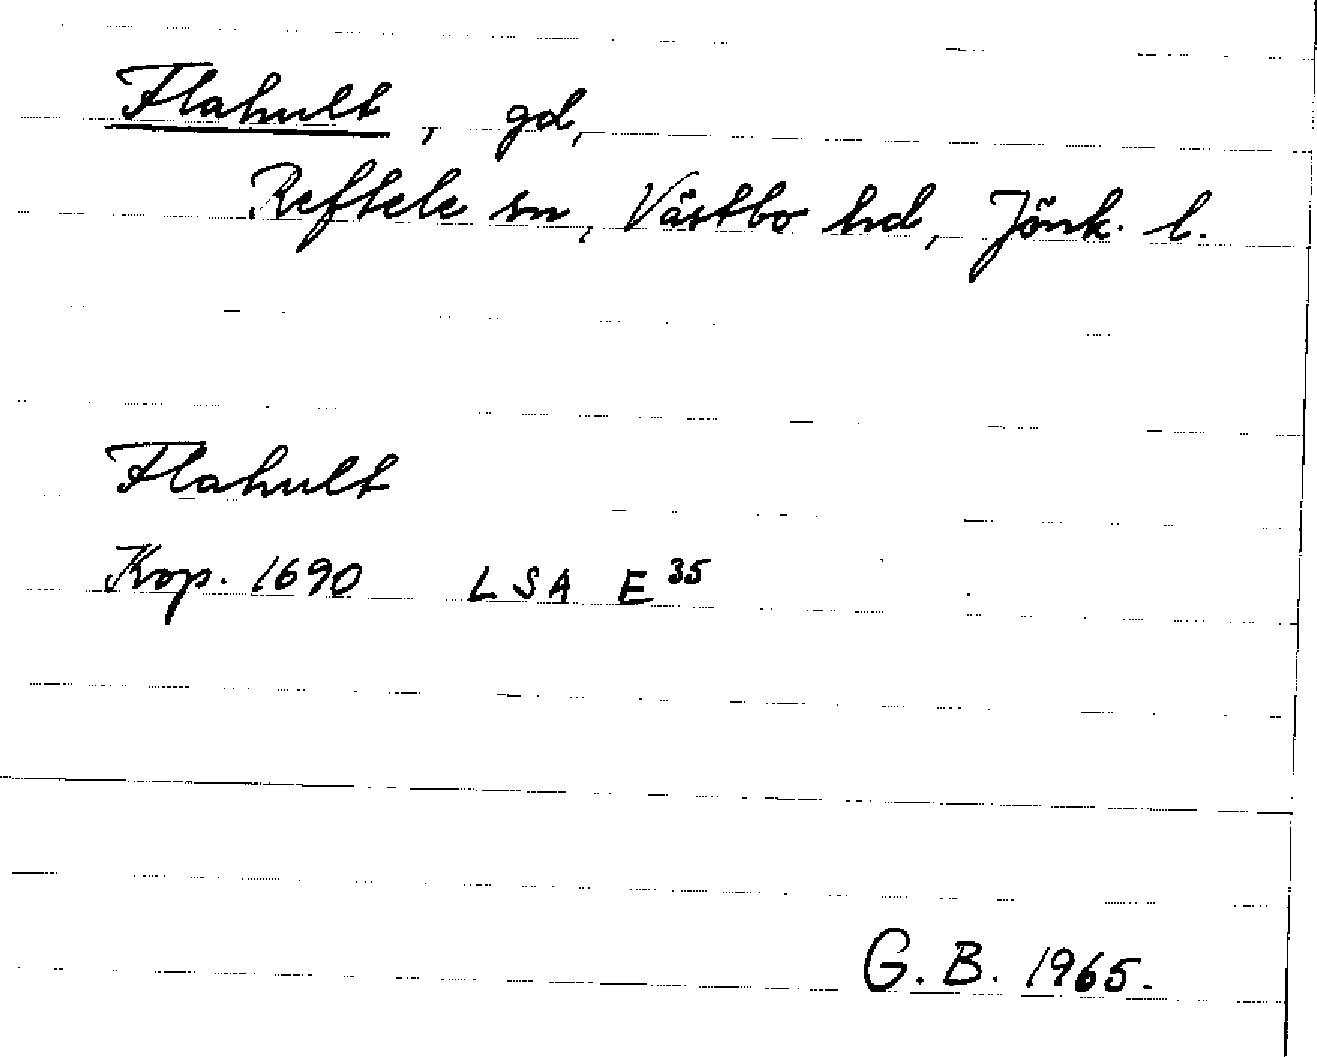 Flahult, gd,
Reftele sn, Västbo hd, Jönk. l.
Flahult
Kop. 1690 LSA E 35
G. B. 1965.